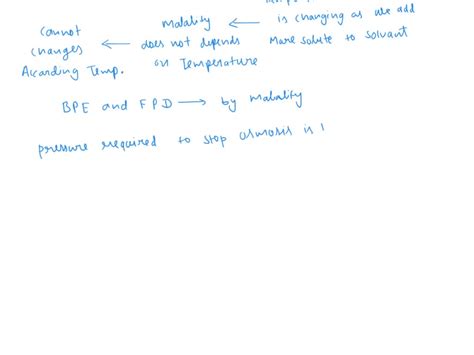 Molality ← is changing as we add
Cannot changes ← does not depends More solute to solvant
Aicarding Temp. on Temperature
BPE and FPD → by Molality
pressure required to stop osmosis is